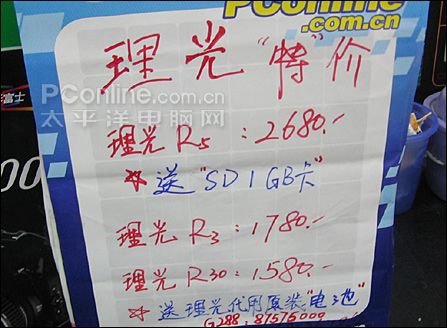 PConline
.com.cn
理光"特"价
PConline.com.cn
太平洋电脑网
富士
00
理光R5:2680.-
*送"SD 1GB卡"
理光R3:1780.-
理光R30:1580.-
*送理光代用原装"电池"
G288:87575009